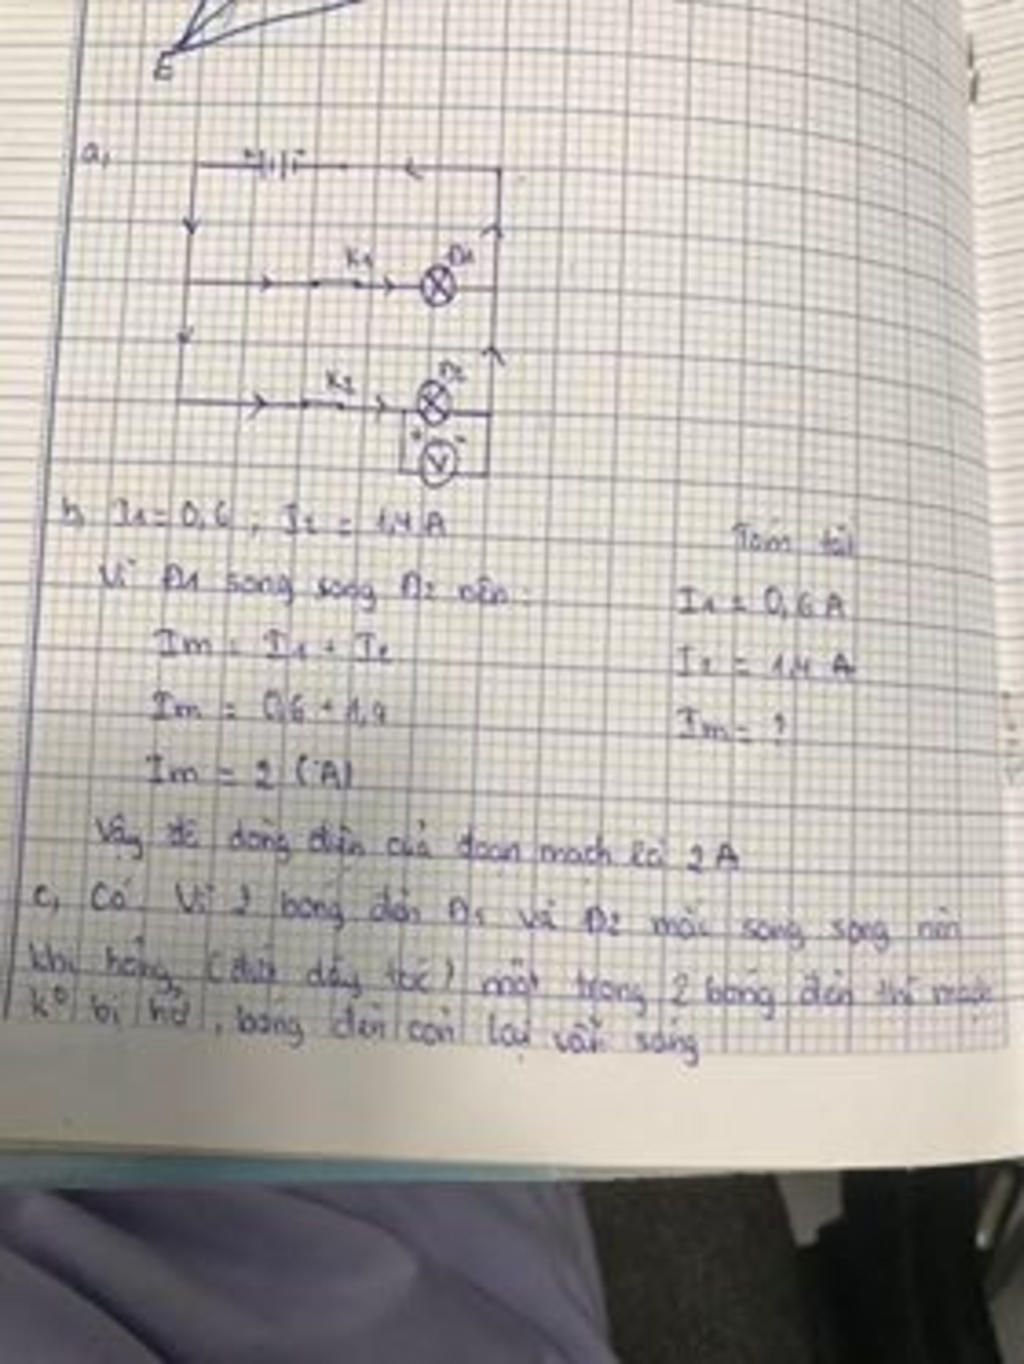 E
a,
K1
Đ1
K2
Đ2
+ -
V
b, I1 = 0,6 ; I2 = 1,4 A
Tóm tắt
Vì Đ1 song song Đ2 nên:
I1 = 0,6 A
Im = I1 + I2
I2 = 1,4 A
Im = 0,6 + 1,4
Im = ?
Im = 2 (A)
Vậy dòng điện của đoạn mạch là 2 A
c, Có. Vì 2 bóng đèn Đ1 và Đ2 mắc song song nên
khi hỏng (đứt dây tóc) một trong 2 bóng đèn thì mạch
k° bị hở, bóng đèn còn lại vẫn sáng